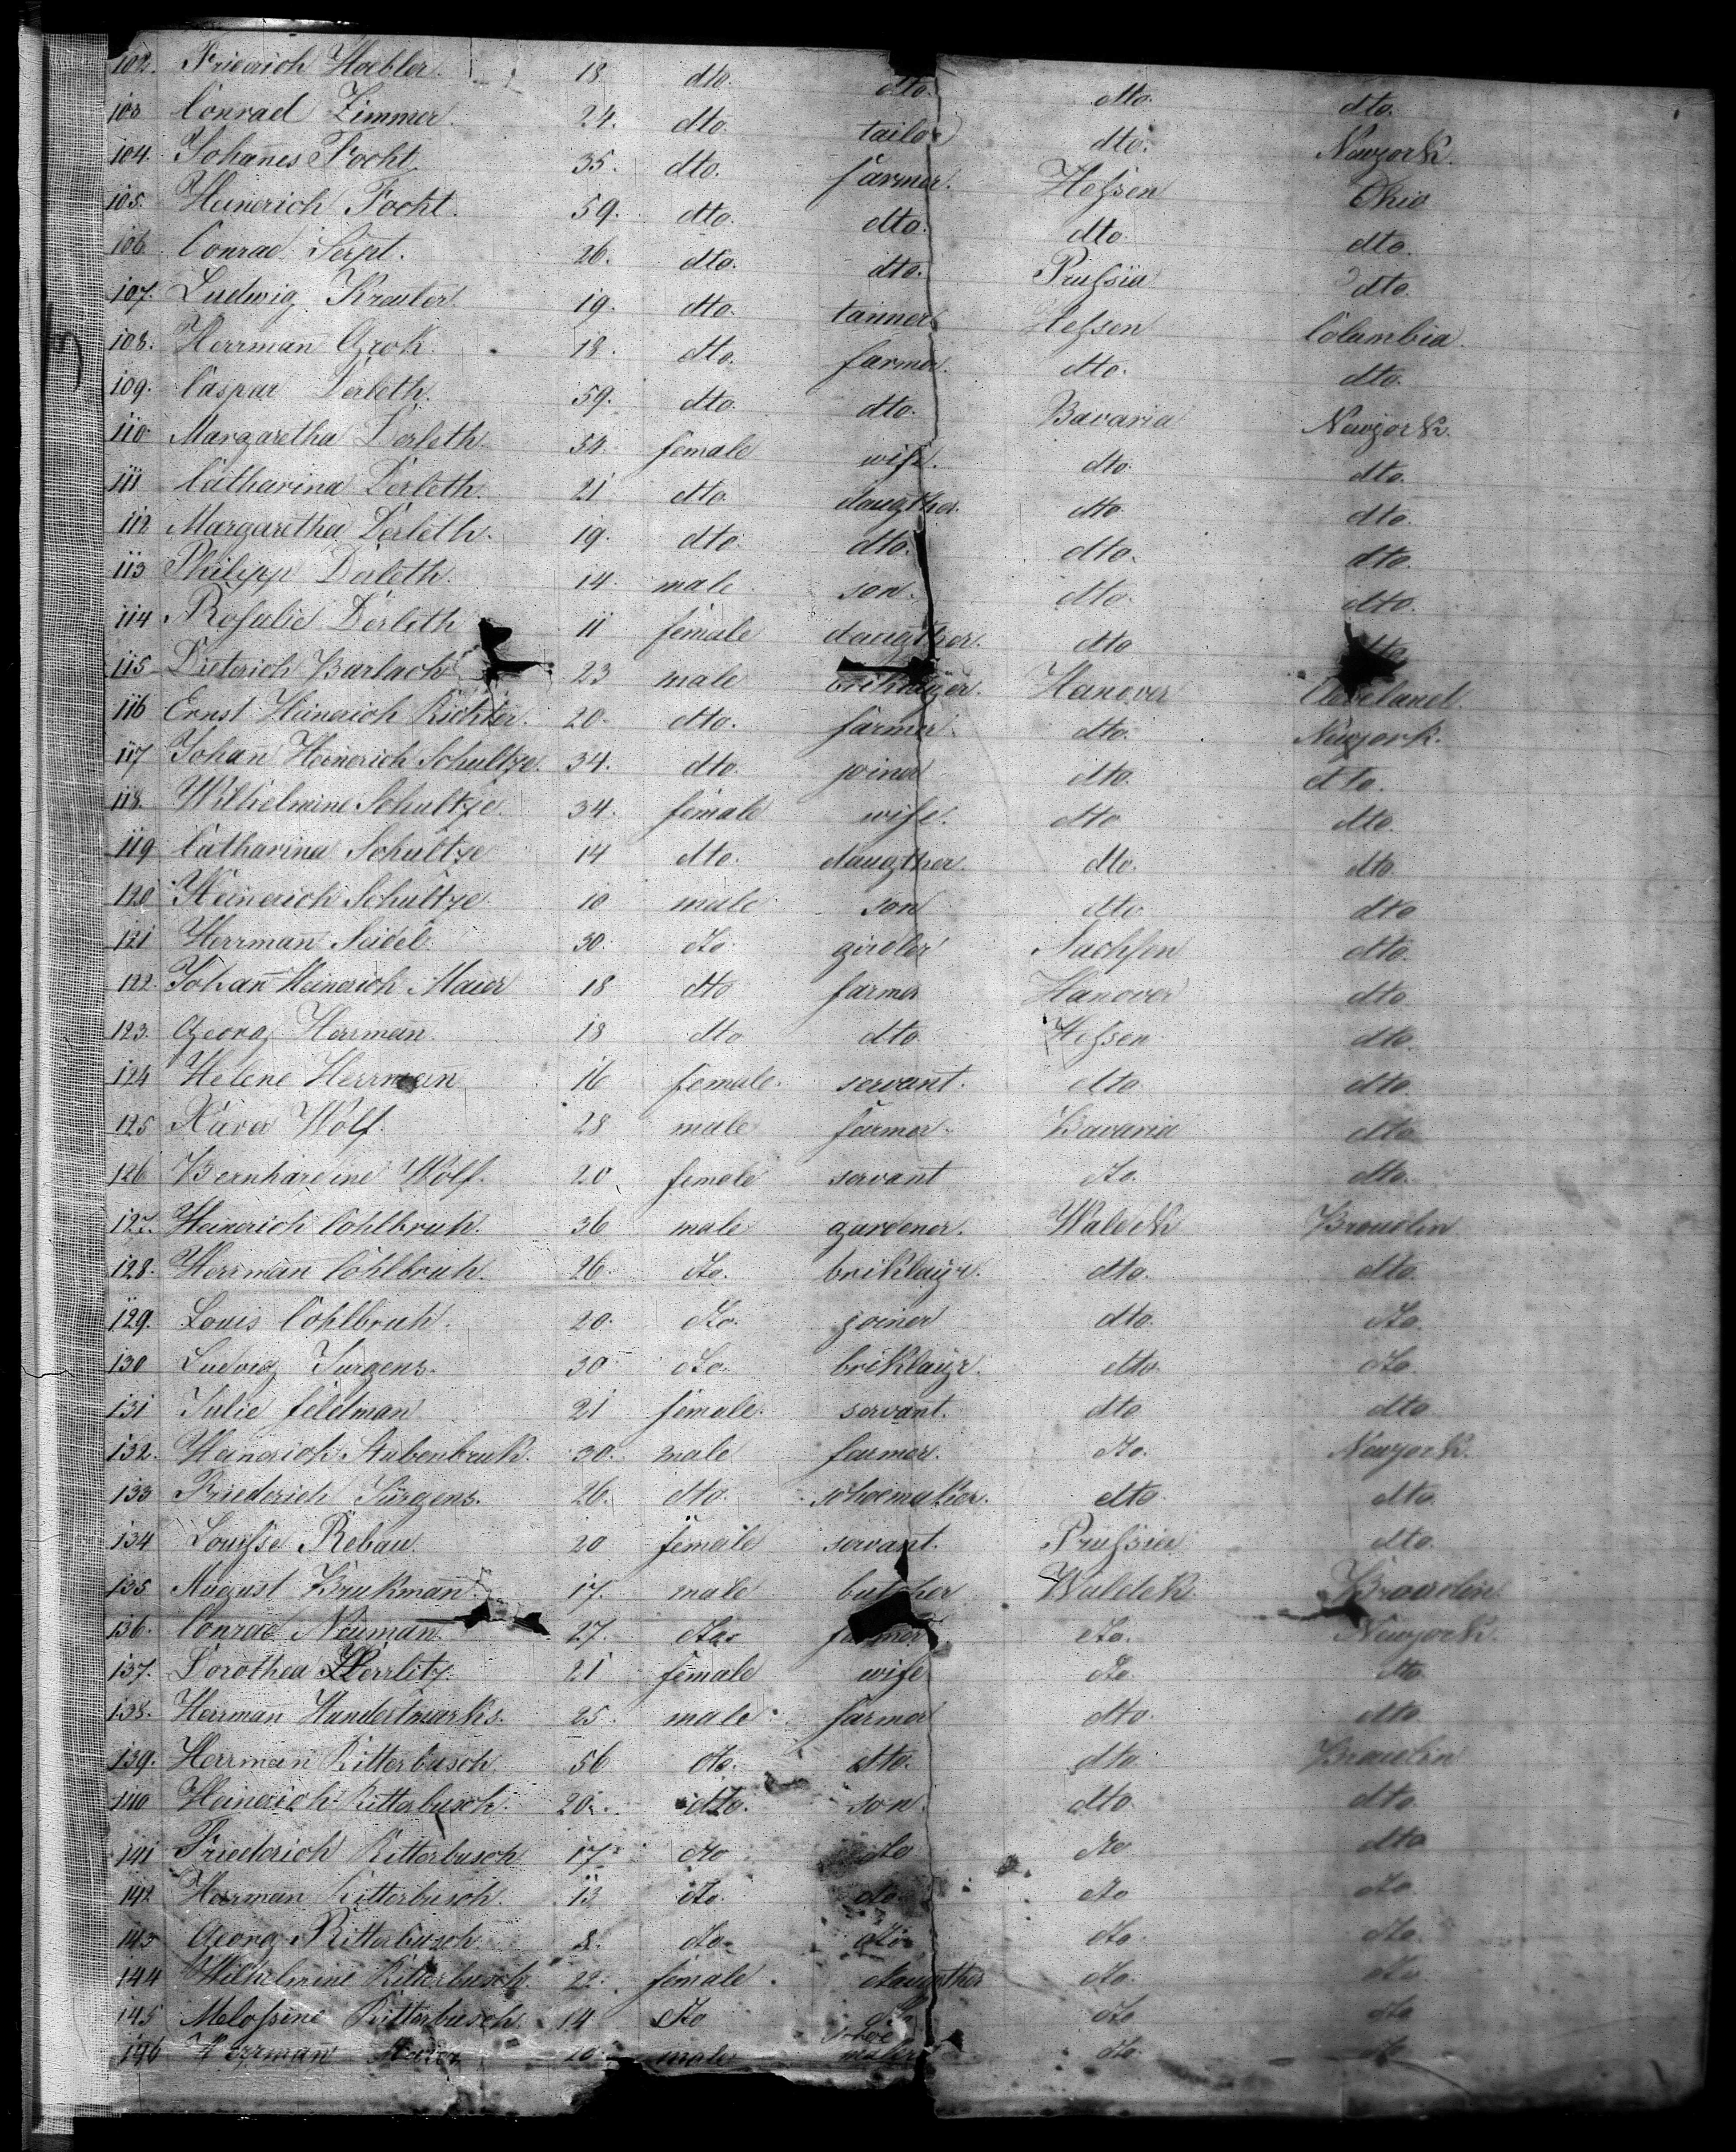 102. Friedrich Haebler. 18 dto. dto. dto. dto.
103 Conrad Zimmer. 24. dto. tailor dto. Newyork.
104. Johanes Focht 35. dto. farmer. Hessen Ohio
105. Heinerich Focht. 59. dto. dto. dto. dto.
106 Conrad 26. dto. dto. Prussia dto.
107. Ludwig Kreuler 19. dto. tanner Hessen Columbia.
108. Herrman Grok. 18. dto. farmer. dto. dto.
109. Caspar Derleth. 59. dto. dto. Bavaria Newyork.
110 Margaretha Derleth. 54. female wife. dto. dto.
111 Catharina Derleth. 21 dto. daugther. dto dto.
112 Margaretha Derleth. 19. dto. dto. dto. dto.
113 Philipp Derleth. 14. male son. dto. dto.
114 Rosalie Derleth 11 female daugther. dto dto
115 Dieterich Barlach 23 male briklayer. Hanover Cleveland.
116 Ernst Heinerich Richter. 20. dto. farmer. dto. Newyork.
117 Johan Heinerich Schultze. 34. dto. joiner dto. dto.
118. Wilhelmine Schultze. 34. female wife. dto dto.
119 Catharina Schultze 14 dto. daugther. dto. dto.
120 Heinerich Schultze. 10 male son dto dto
121 Herrman Seidel. 30. dto. girdler Sachsen dto.
122. Johan Heinerich Maier 18 dto farmer Hanover dto
123. Georg Herrman. 18 dto dto Hessen dto.
124 Helene Herrman 16 female. servant. dto dto.
125 Xaver Wolf. 28 male farmer. Bavaria dto
126 Bernhardine Wolf. 20 female servant dto. dto.
127. Heinerich Cohlbruh. 36 male gardener. Waldek Broudlin
128. Herrman Cohlbruh. 26. dto. briklayr. dto. dto.
129. Louis Cohlbruh. 20. dto. joiner dto. dto.
130 Ludwig Jurgens. 30 dto. briklayr. dto. dto.
131 Julie feldman 21 female. servant. dto dto
132. Heinerich Stubenbruk. 30. male farmer. dto. Newyork.
133 Friederich Jürgens. 26. dto. schoemaker. dto dto.
134 Louisse Rebau 20 female servant. Prussia dto.
135 August Brukman 17. male butcher Waldek Broudlin
136. Conrad Neuman. 27. dto. farmer dto. Newyork.
137. Dorothea Herrlitz. 21 female wife dto. dto.
138. Herrman Hundertmarks. 25. male farmer dto. dto.
139. Herrman Ritterbusch. 56 dto. dto. dto. Broudlin
140 Heinerich Ritterbusch. 20. dto. son. dto dto.
141 Friederich Ritterbusch 17 dto dto dto dto
142 Herrman Ritterbusch. 13 dto. dto dto dto.
143 Georg Ritterbusch. 8. dto. dto. dto. dto.
144 Wilhelmine Ritterbusch. 22. female. daugther dto. dto.
145 Melossine Ritterbusch. 14 dto dto dto
146 Herrman male schoe maker dto. dto